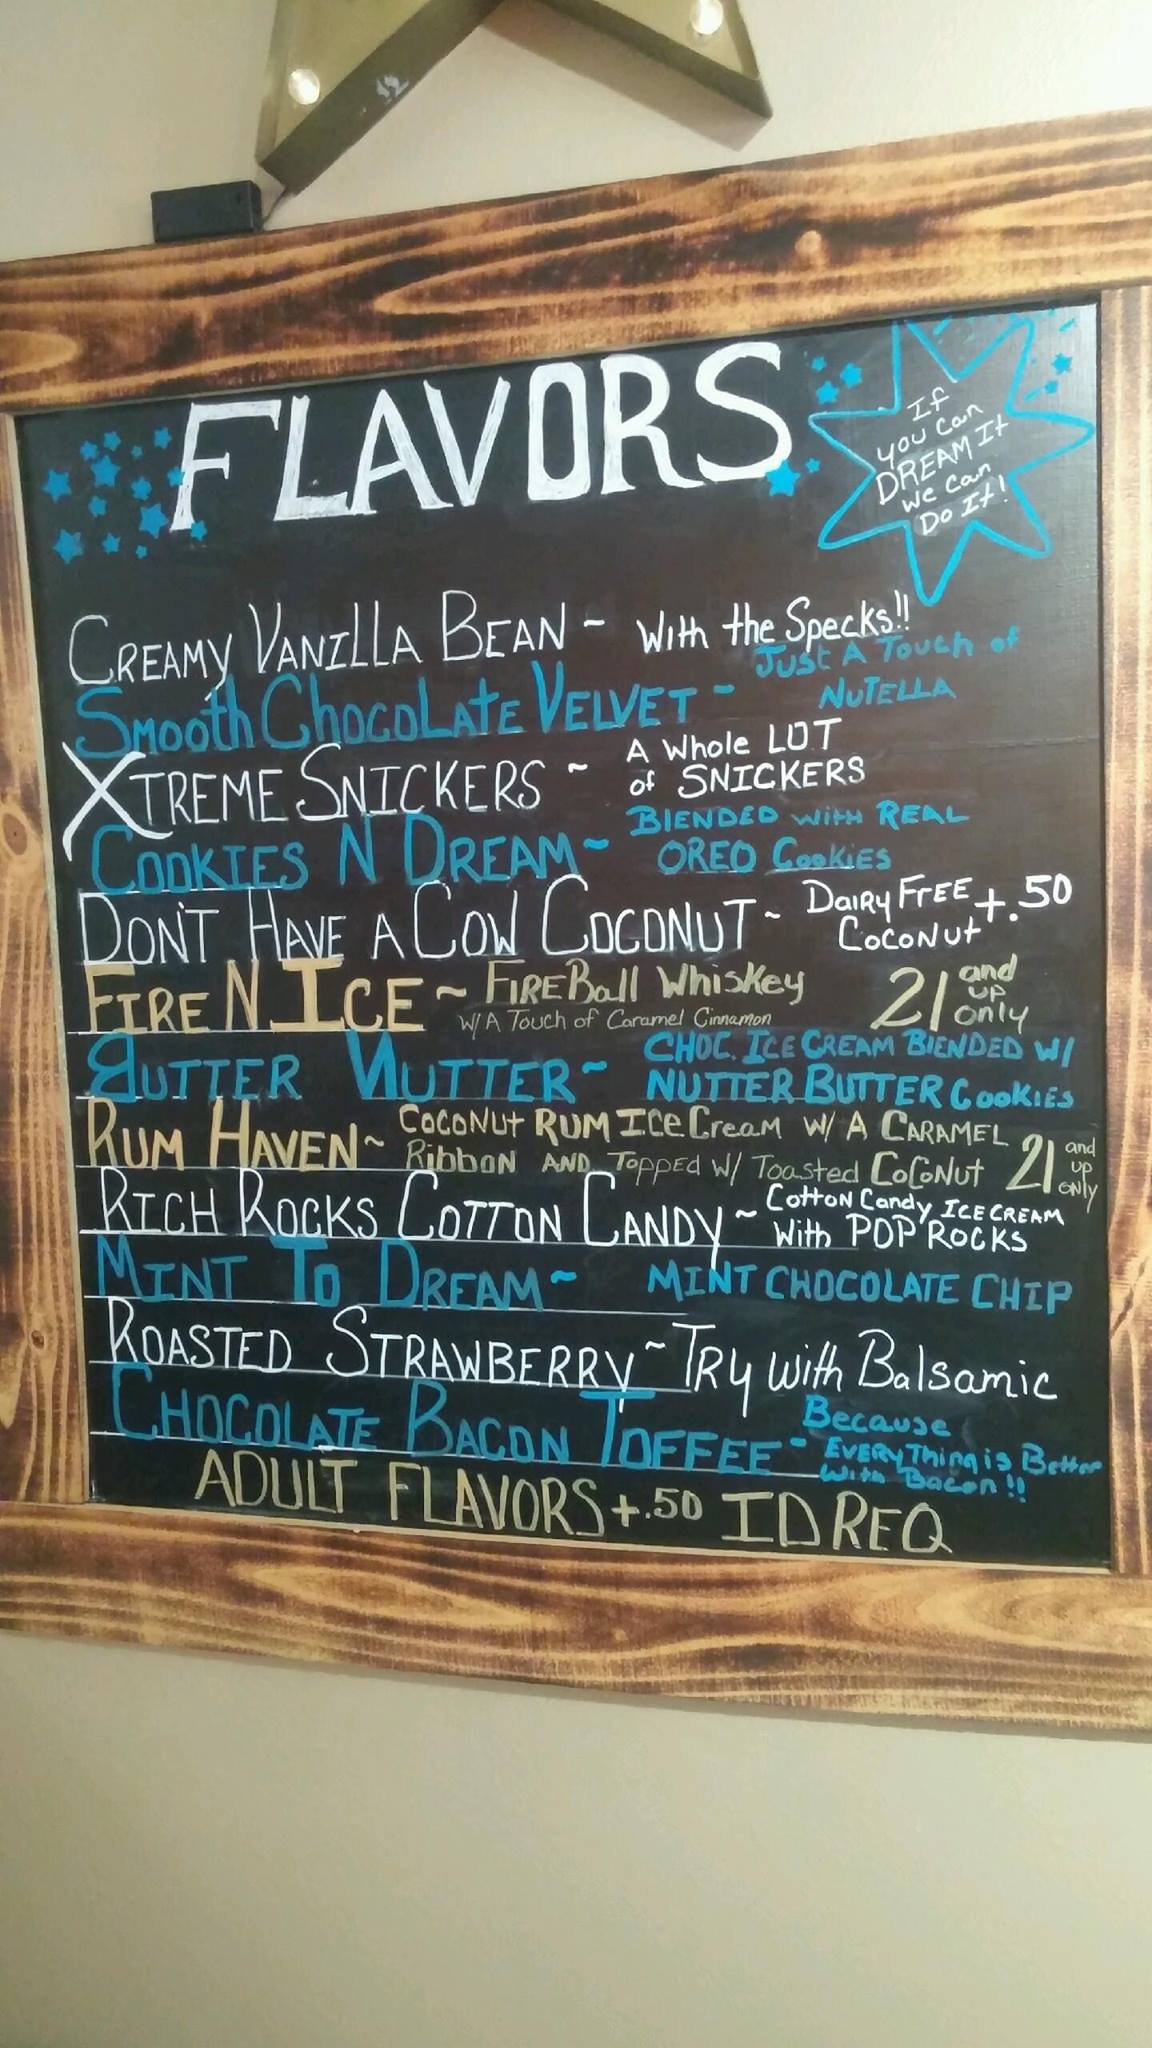 FLAVORS
If
you can
DREAM It
we can
Do It!
CREAMY VANILLA BEAN ~ With the Specks!!
SMOOTH CHOCOLATE VELVET ~ JUST A TOUCH of
NUTELLA
XTREME SNICKERS ~ A Whole LOT
of SNICKERS
COOKIES N DREAM ~ BLENDED WITH REAL
OREO COOKIES
DON'T HAVE A COW COCONUT ~ DAIRY FREE +.50
COCONUT
FIRE N ICE ~ FIREBALL WHISKEY
W/ A Touch of Caramel Cinnamon
21 and
up
only
BUTTER NUTTER ~ CHOC. ICE CREAM BLENDED W/
NUTTER BUTTER COOKIES
RUM HAVEN ~ COCONUT RUM ICE CREAM W/ A CARAMEL
RIBBON AND TOPPED W/ TOASTED COCONUT
21 and
up
ONLY
RICH ROCKS COTTON CANDY ~ COTTON CANDY ICE CREAM
With POP ROCKS
MINT TO DREAM ~ MINT CHOCOLATE CHIP
ROASTED STRAWBERRY ~ TRY WITH Balsamic
CHOCOLATE BACON TOFFEE ~ Because
EVERYThing is Better
With Bacon!!
ADULT FLAVORS +.50 ID REQ